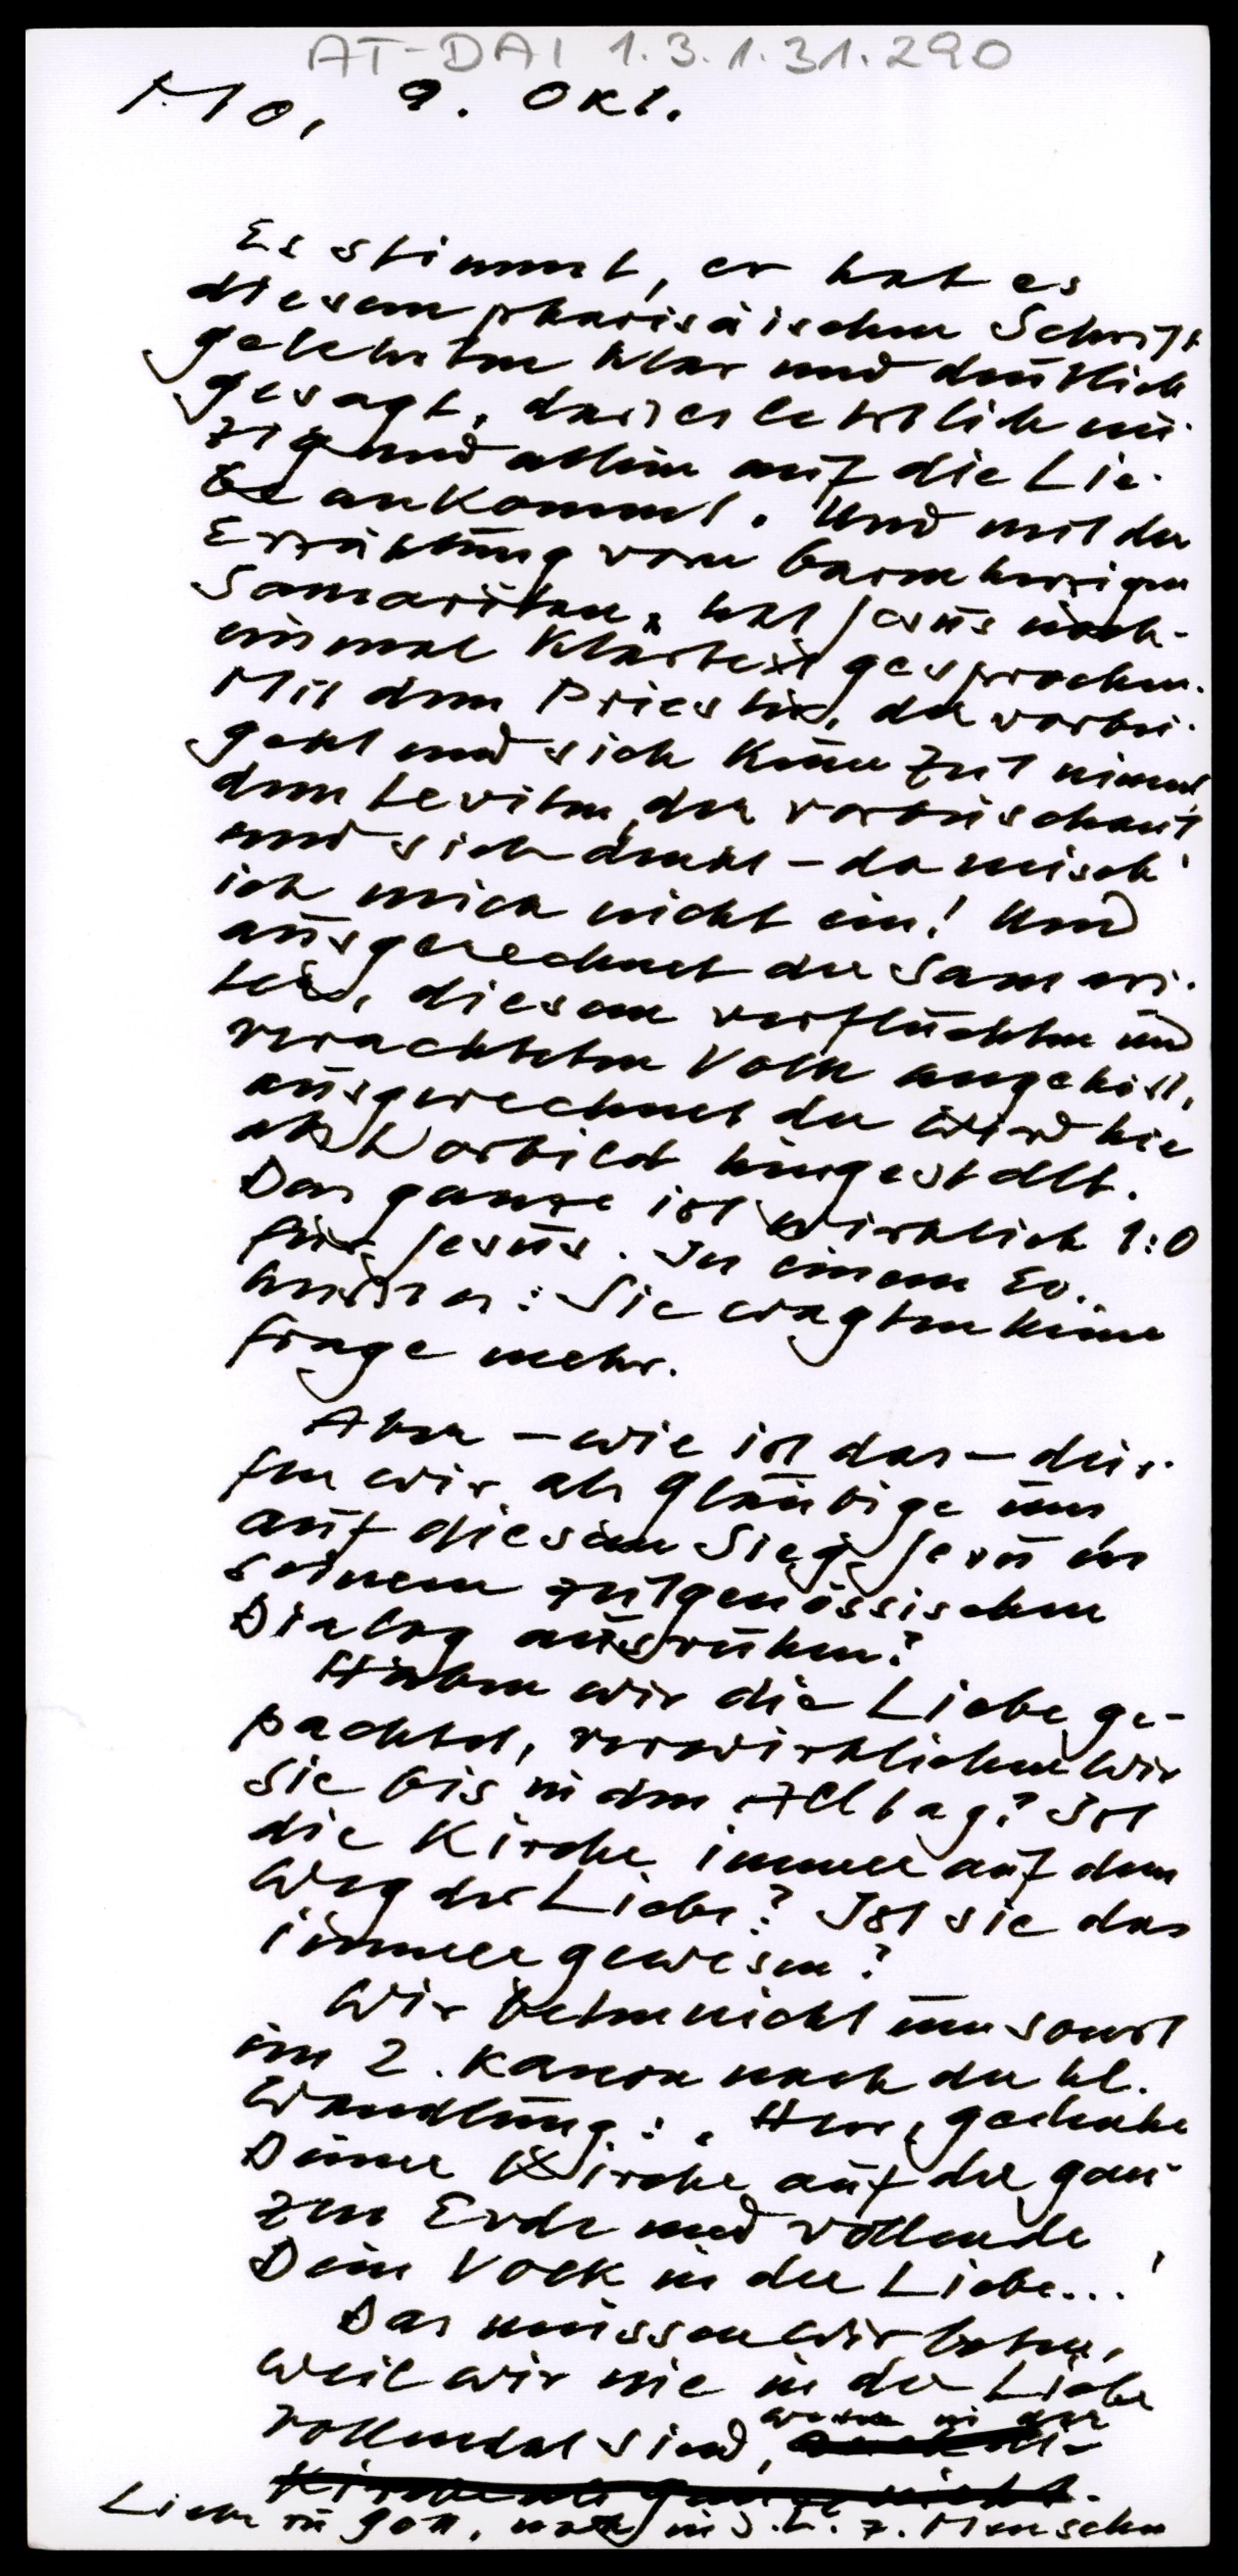 AT-DAI 1.3.1.31.290
Mo, 9. Okt.
Es stimmt, er hat es
diesem pharisäischen Schrift
gelehrten klar und deutlich
gesagt, dass es letztlich ein
zig und allein auf die Lie-
be ankommt. Und mit der
Erzählung vom barmherzigen
Samariter, hat Jesus noch-
einmal Klartext gesprochen.
Mit dem Priester, der vorbei-
geht und sich keine Zeit nimmt,
dem Leviten, der vorbeischaut
und sich denkt - da misch'
ich mich nicht ein! Und
ausgerechnet der Samari-
ter, diesem verfluchten und
verachteten Volk angehört,
ausgerechnet der wird hier
als Vorbild hingestellt.
Das ganze ist wirklich 1:0
für Jesus. In einem Ev.
heißt es: Sie wagten keine
Frage mehr.
Aber - wie ist das - dür-
fen wir als Gläubige nun
auf diesem Sieg Jesu in
seinem zeitgenössischen
Dialog ausruhen?
Haben wir die Liebe ge-
pachtet, verwirklichen wir
sie bis in den Alltag? Ist
die Kirche immer auf dem
Weg der Liebe? Ist sie das
immer gewesen?
Wir beten nicht umsonst
im 2. Kanon nach der hl.
Wandlung: "Herr, gedenke
Deiner Kirche auf der gan-
zen Erde und vollende
Dein Volk in der Liebe..."
Das müssen wir beten,
weil wir nie in der Liebe
vollendet sind, weder in der
Liebe zu Gott, noch in d. L. z. Menschen